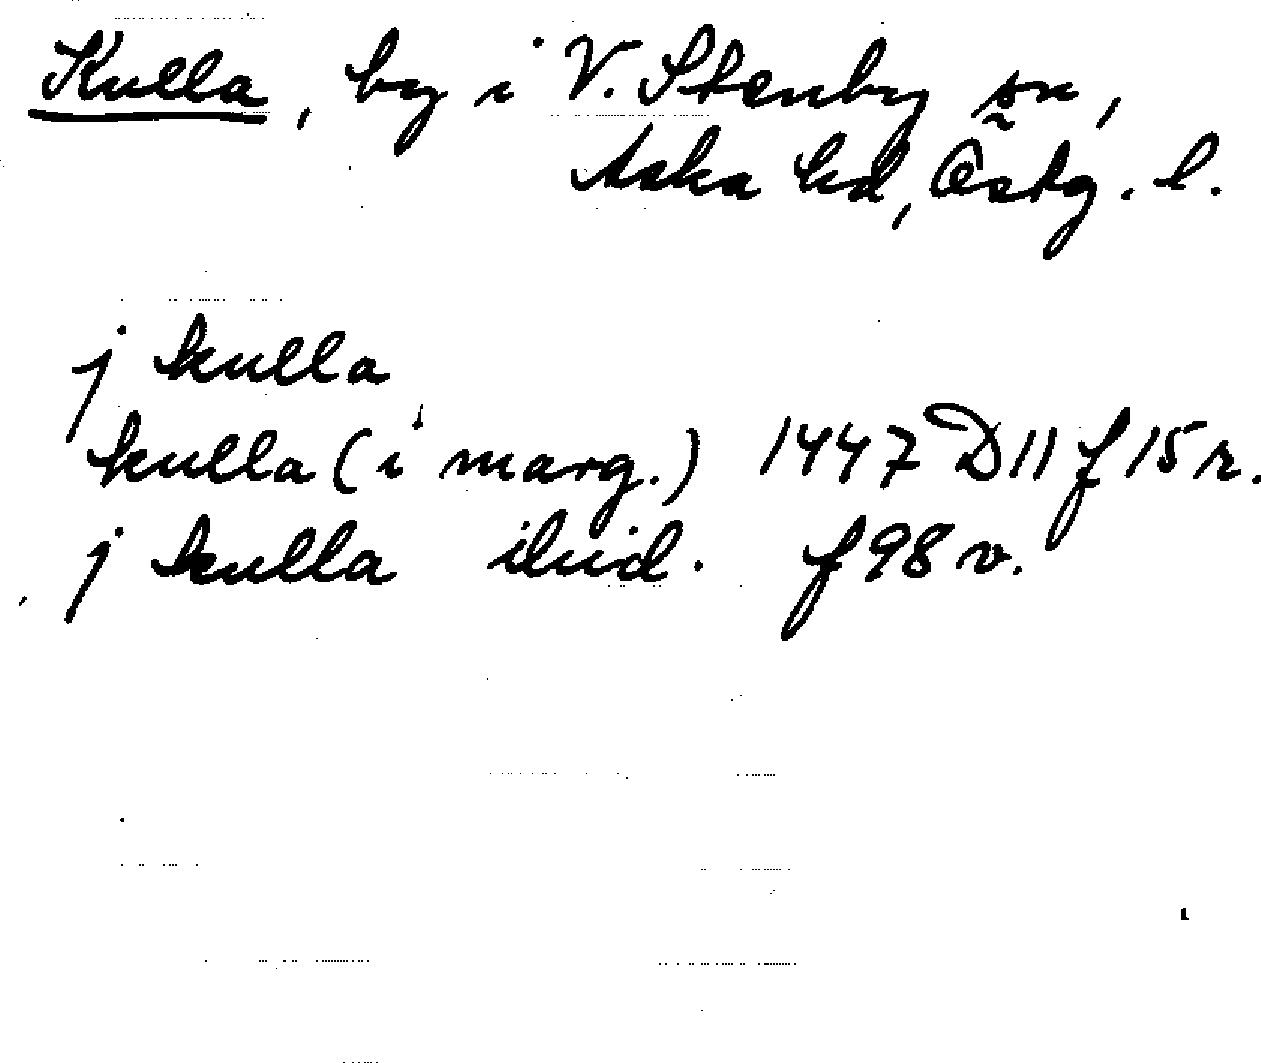 Kulla, by i V. Stenby sn,
Aska hd, Östg. l.
j kulla
kulla (i marg.) 1447 D11 f 15 r.
j kulla ibid. f 98 v.